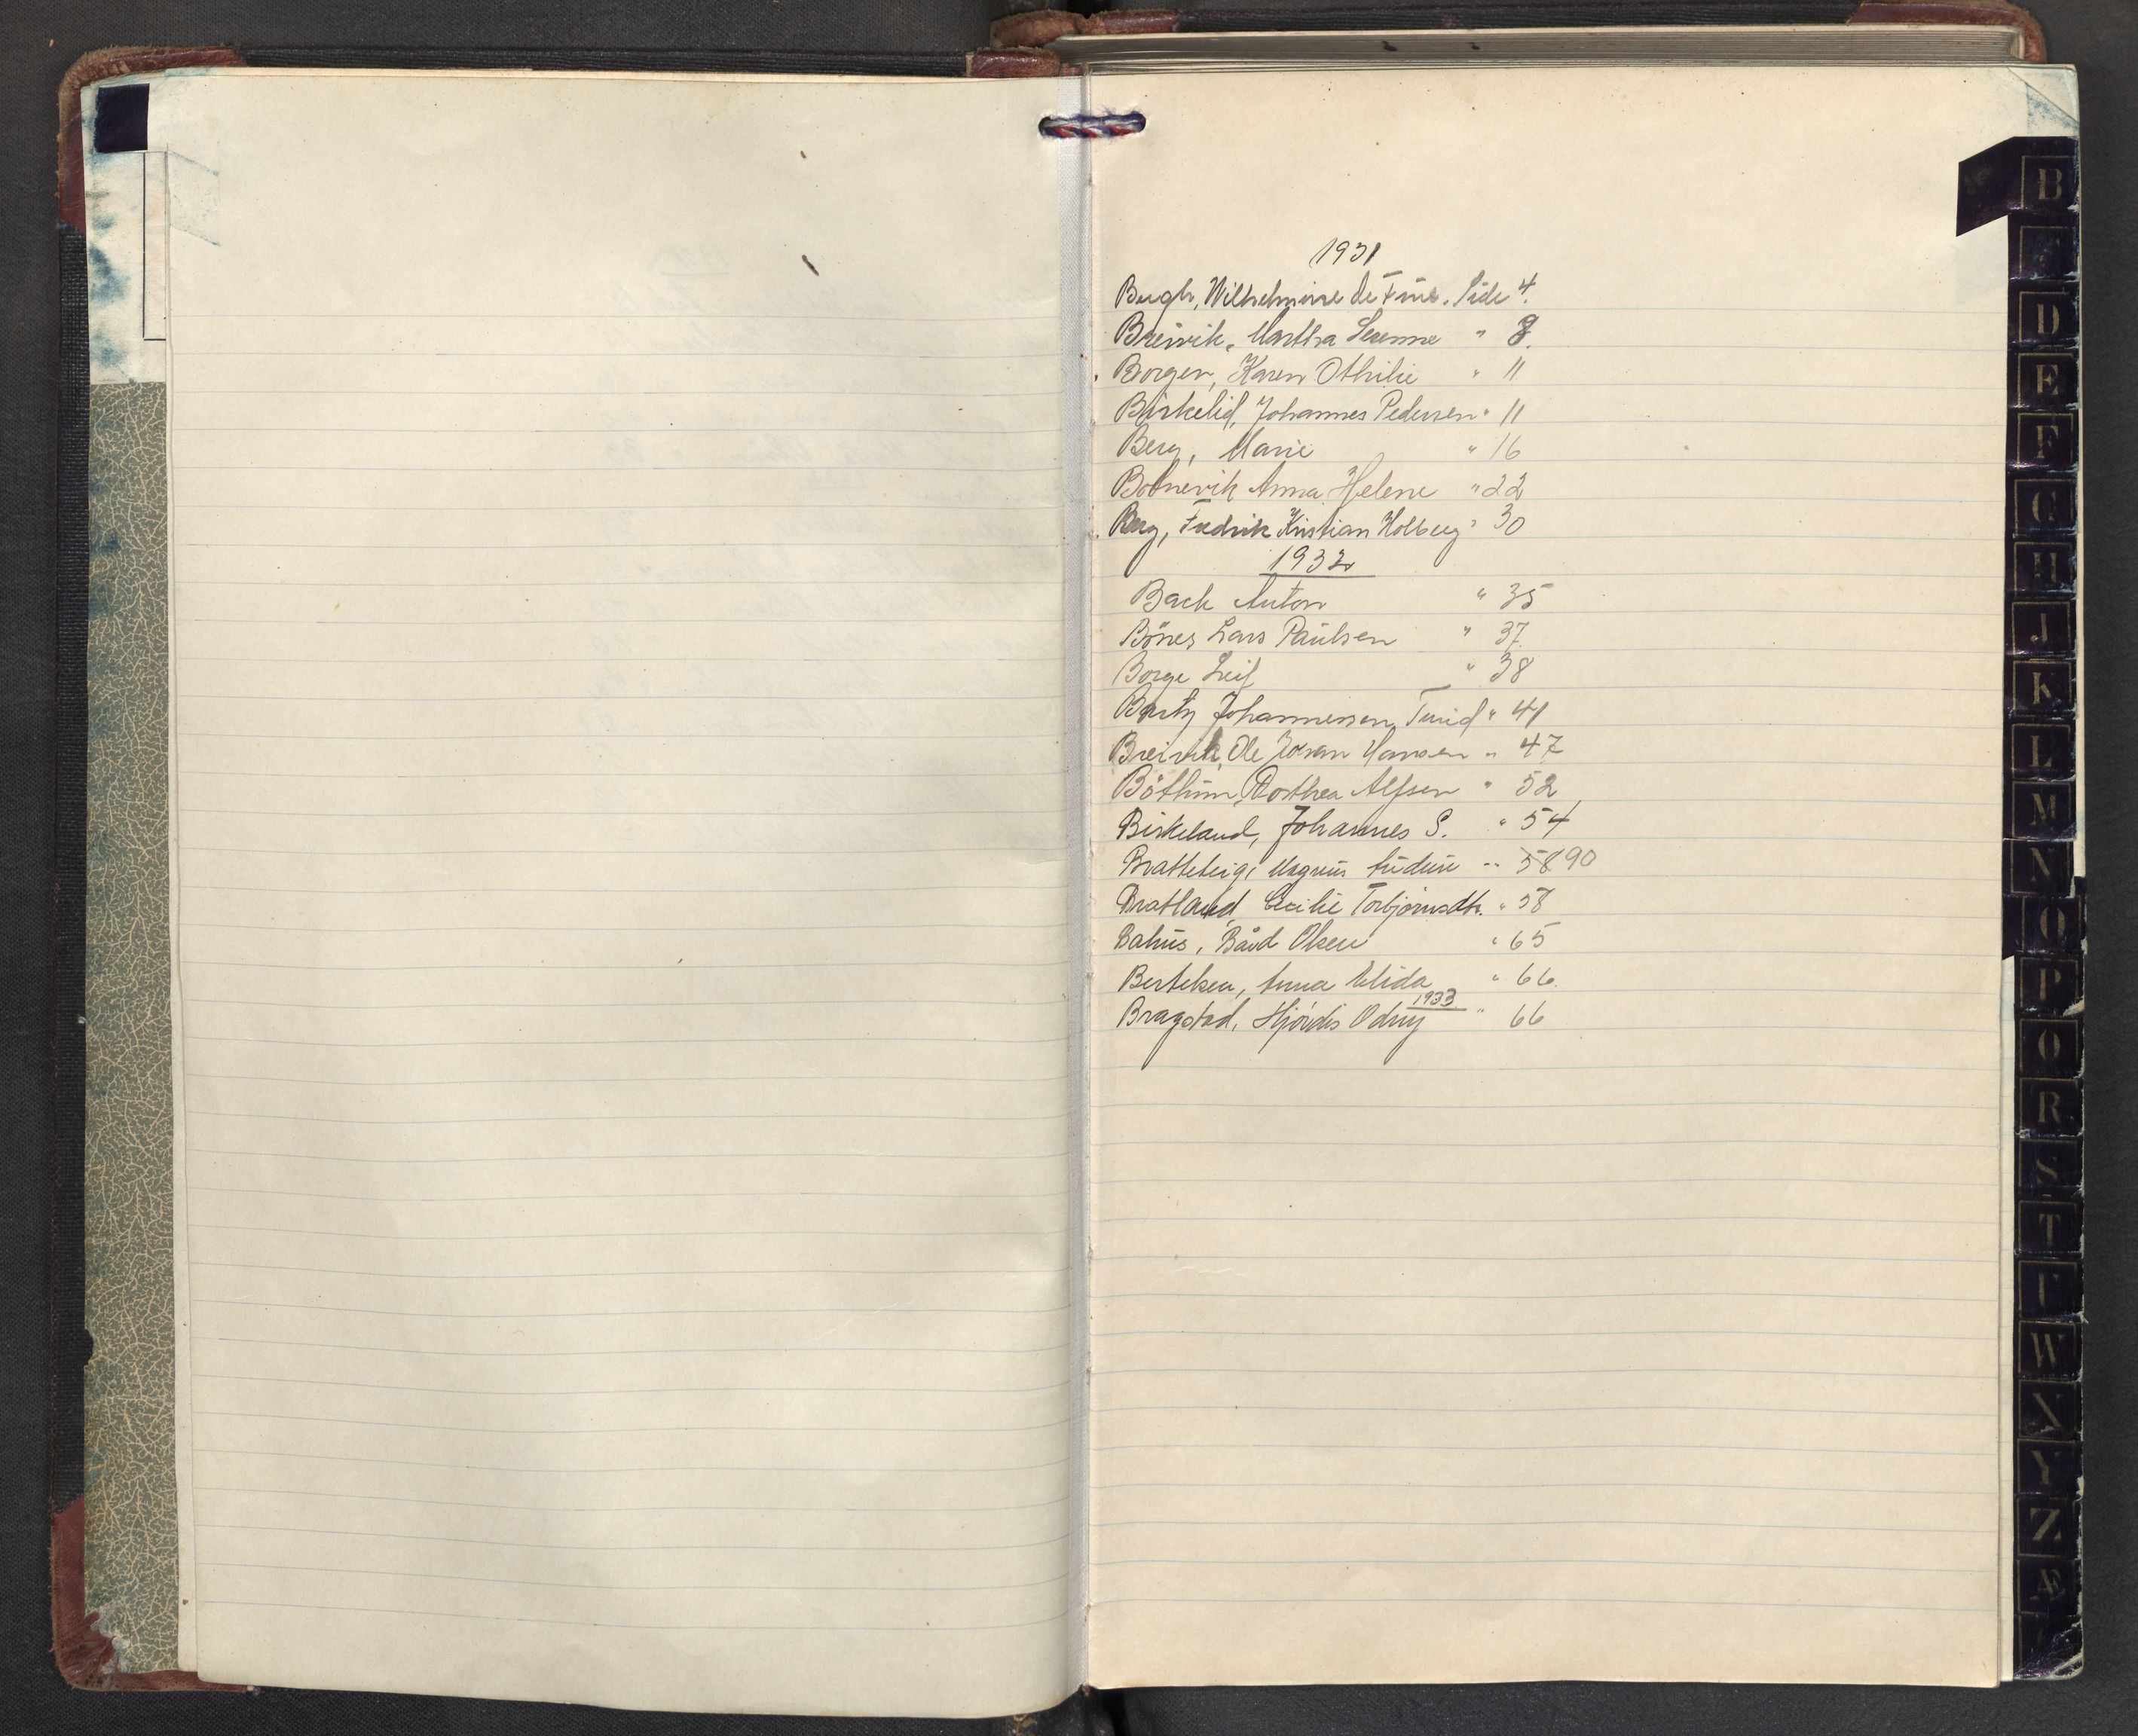 1931
Bergh, Wilhelmine De Fine. Side 4.
Breivik, Martha Serenne " 8.
Borgen, Karen Othilie " 11
Birkelid, Johannes Pedersen " 11
Berg, Marie " 16
Botnevik Anna Helene " 22
Berg, Fredrik Kristian Holberg " 30
1932
Back Anton " 35
Bönes Lars Paulsen " 37.
Borge Leif " 38
Johannessen, Turid " 41
Breivik, Ole Johan Hansen " 47
Böthun, Dorthea Alfsen " 52
Birkeland, Johannes S. " 54
Bratteteig, Magnus " 58 90
Bratland, Cecilie Torbjørnsdtr. " 58
Bahus, Bård Olsen " 65
Bertelsen, Anna Elida " 66.
1933
Bragstad, Hjördis Odny " 66
B
D
E
F
G
H
J
K
L
M
N
O
P
Q
R
S
T
U
W
X
Y
Z
Æ